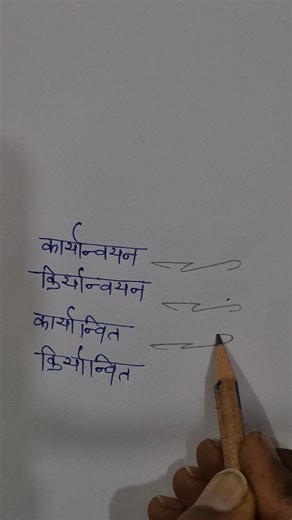 कार्यान्वयन
क्रिर्यान्वयन
कार्यान्वित
क्रिर्यान्वित